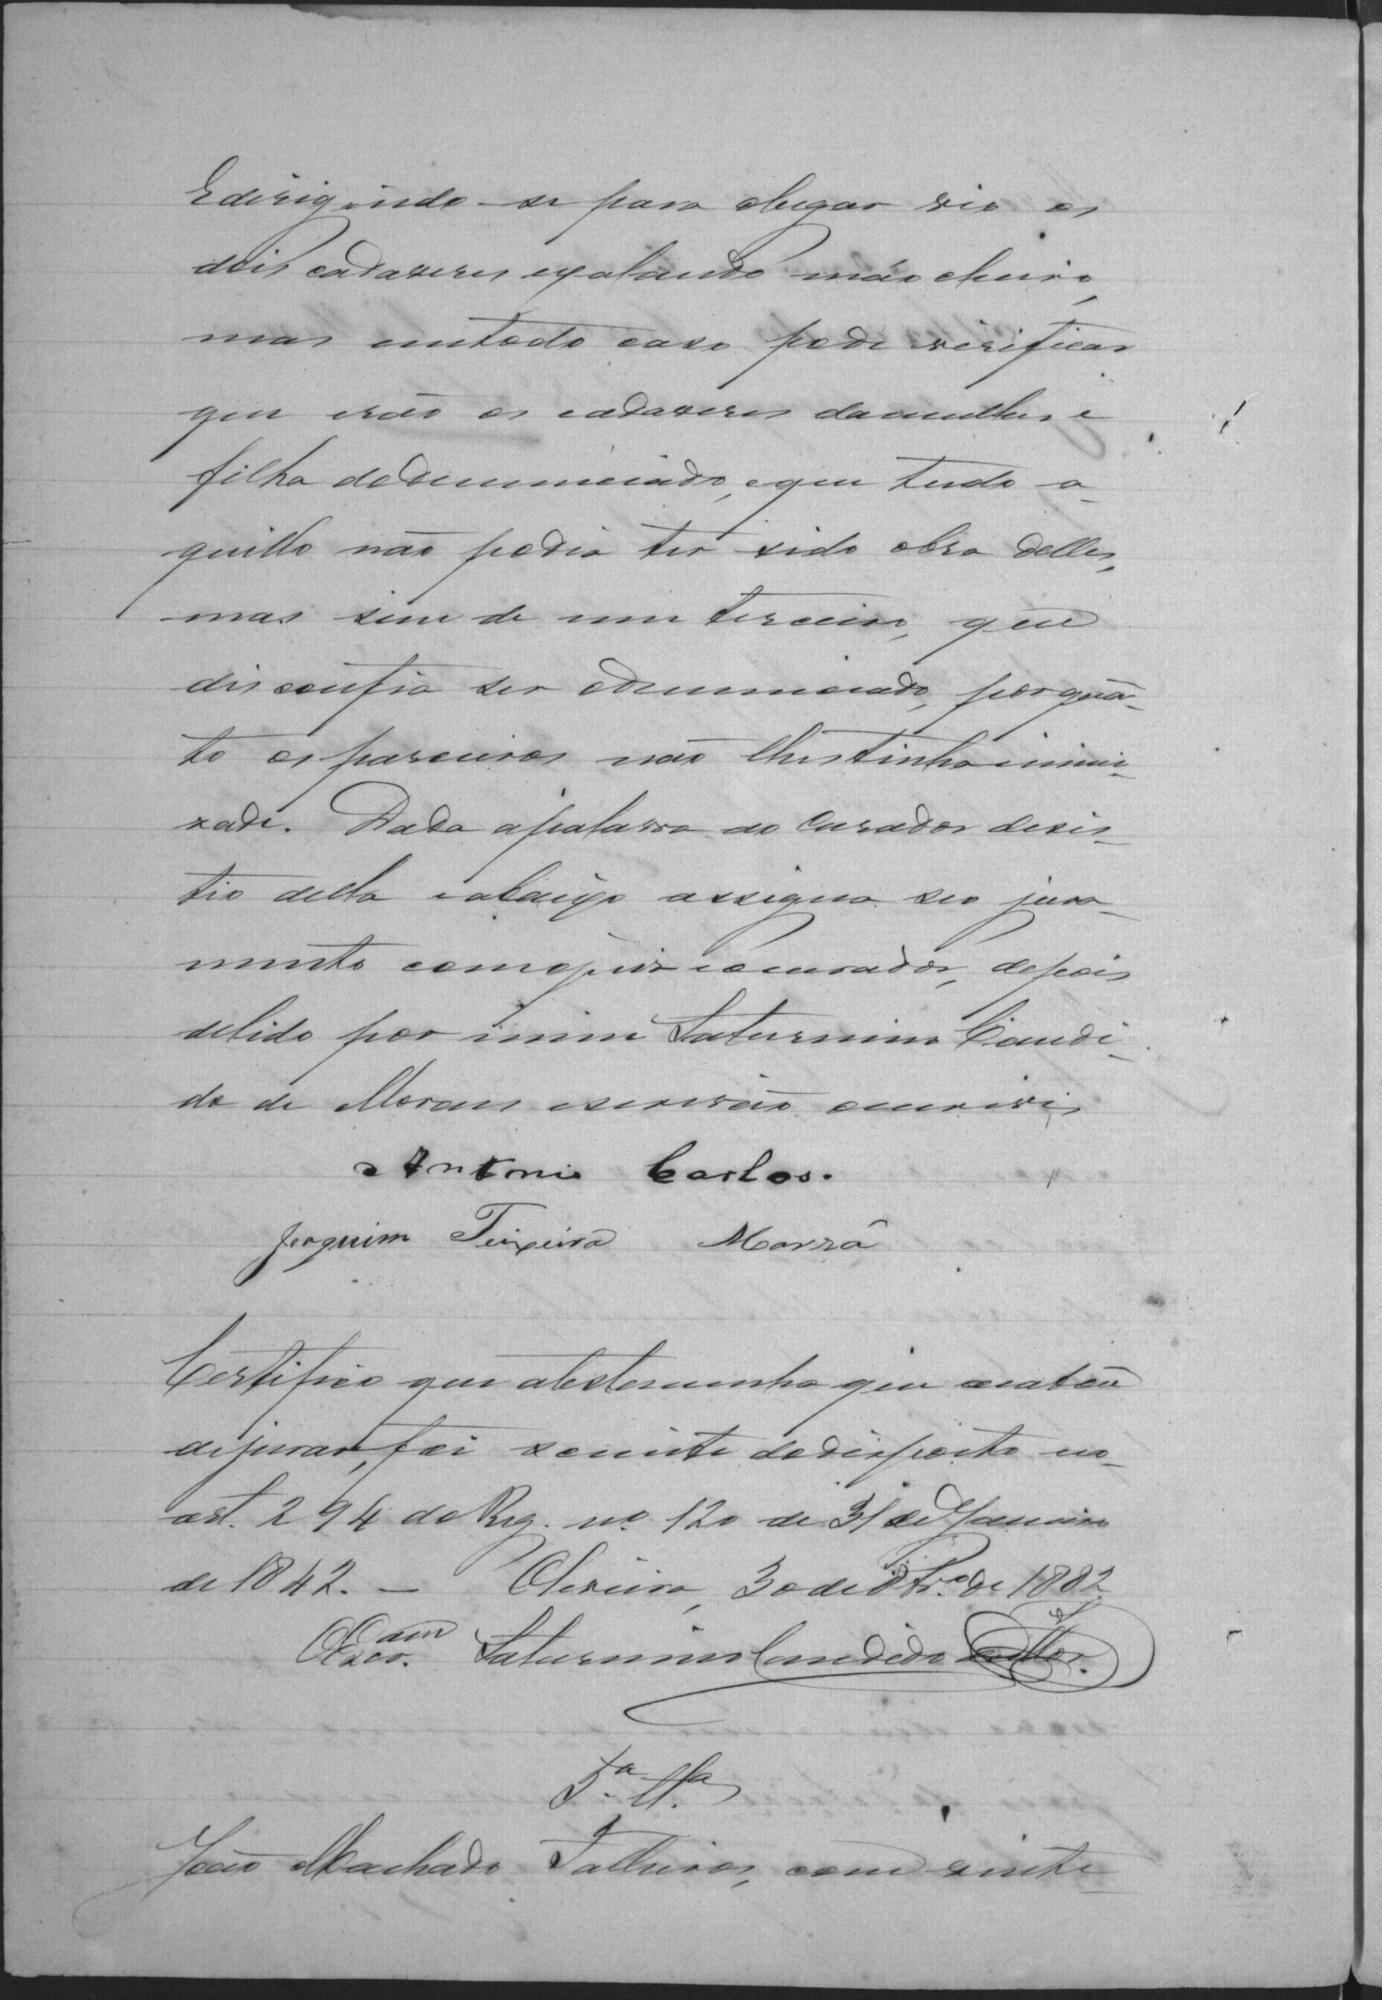 E dirigindo-se para o lugar vio os
dois cadaveres exalando máo cheiro,
mas emtodo caso pode virificar
que erão os cadaveres damulher e
filha dodenunciado, eque tudo a-
quillo não podia ter sido obra delles,
mas sim de um terceiro, que
disconfia ser odenunciado, porquã-
to os parceiros não lhes tinha inimi-
zade. Dada apalavra ao Curador desis-
tio della e abaixo assigna seo jura-
mento comojuiz e ocurador, depois
delido por mim Saturnino Candi-
do de Moraes escrivão oescrivi
Antonio Carlos.
Joaquim Teixeira Marrã
Certifico que atestemunha que acabou
dejurar, foi sciente dodisposto no
art. 294 do Reg. nº 120 de 31 de Janeiro
de 1842. — Oliveira, 30 de 8brº de 1882
O Escr. Saturnino Candido de Mor.
5ª T.ª
João Machado Talheiros, com vinte